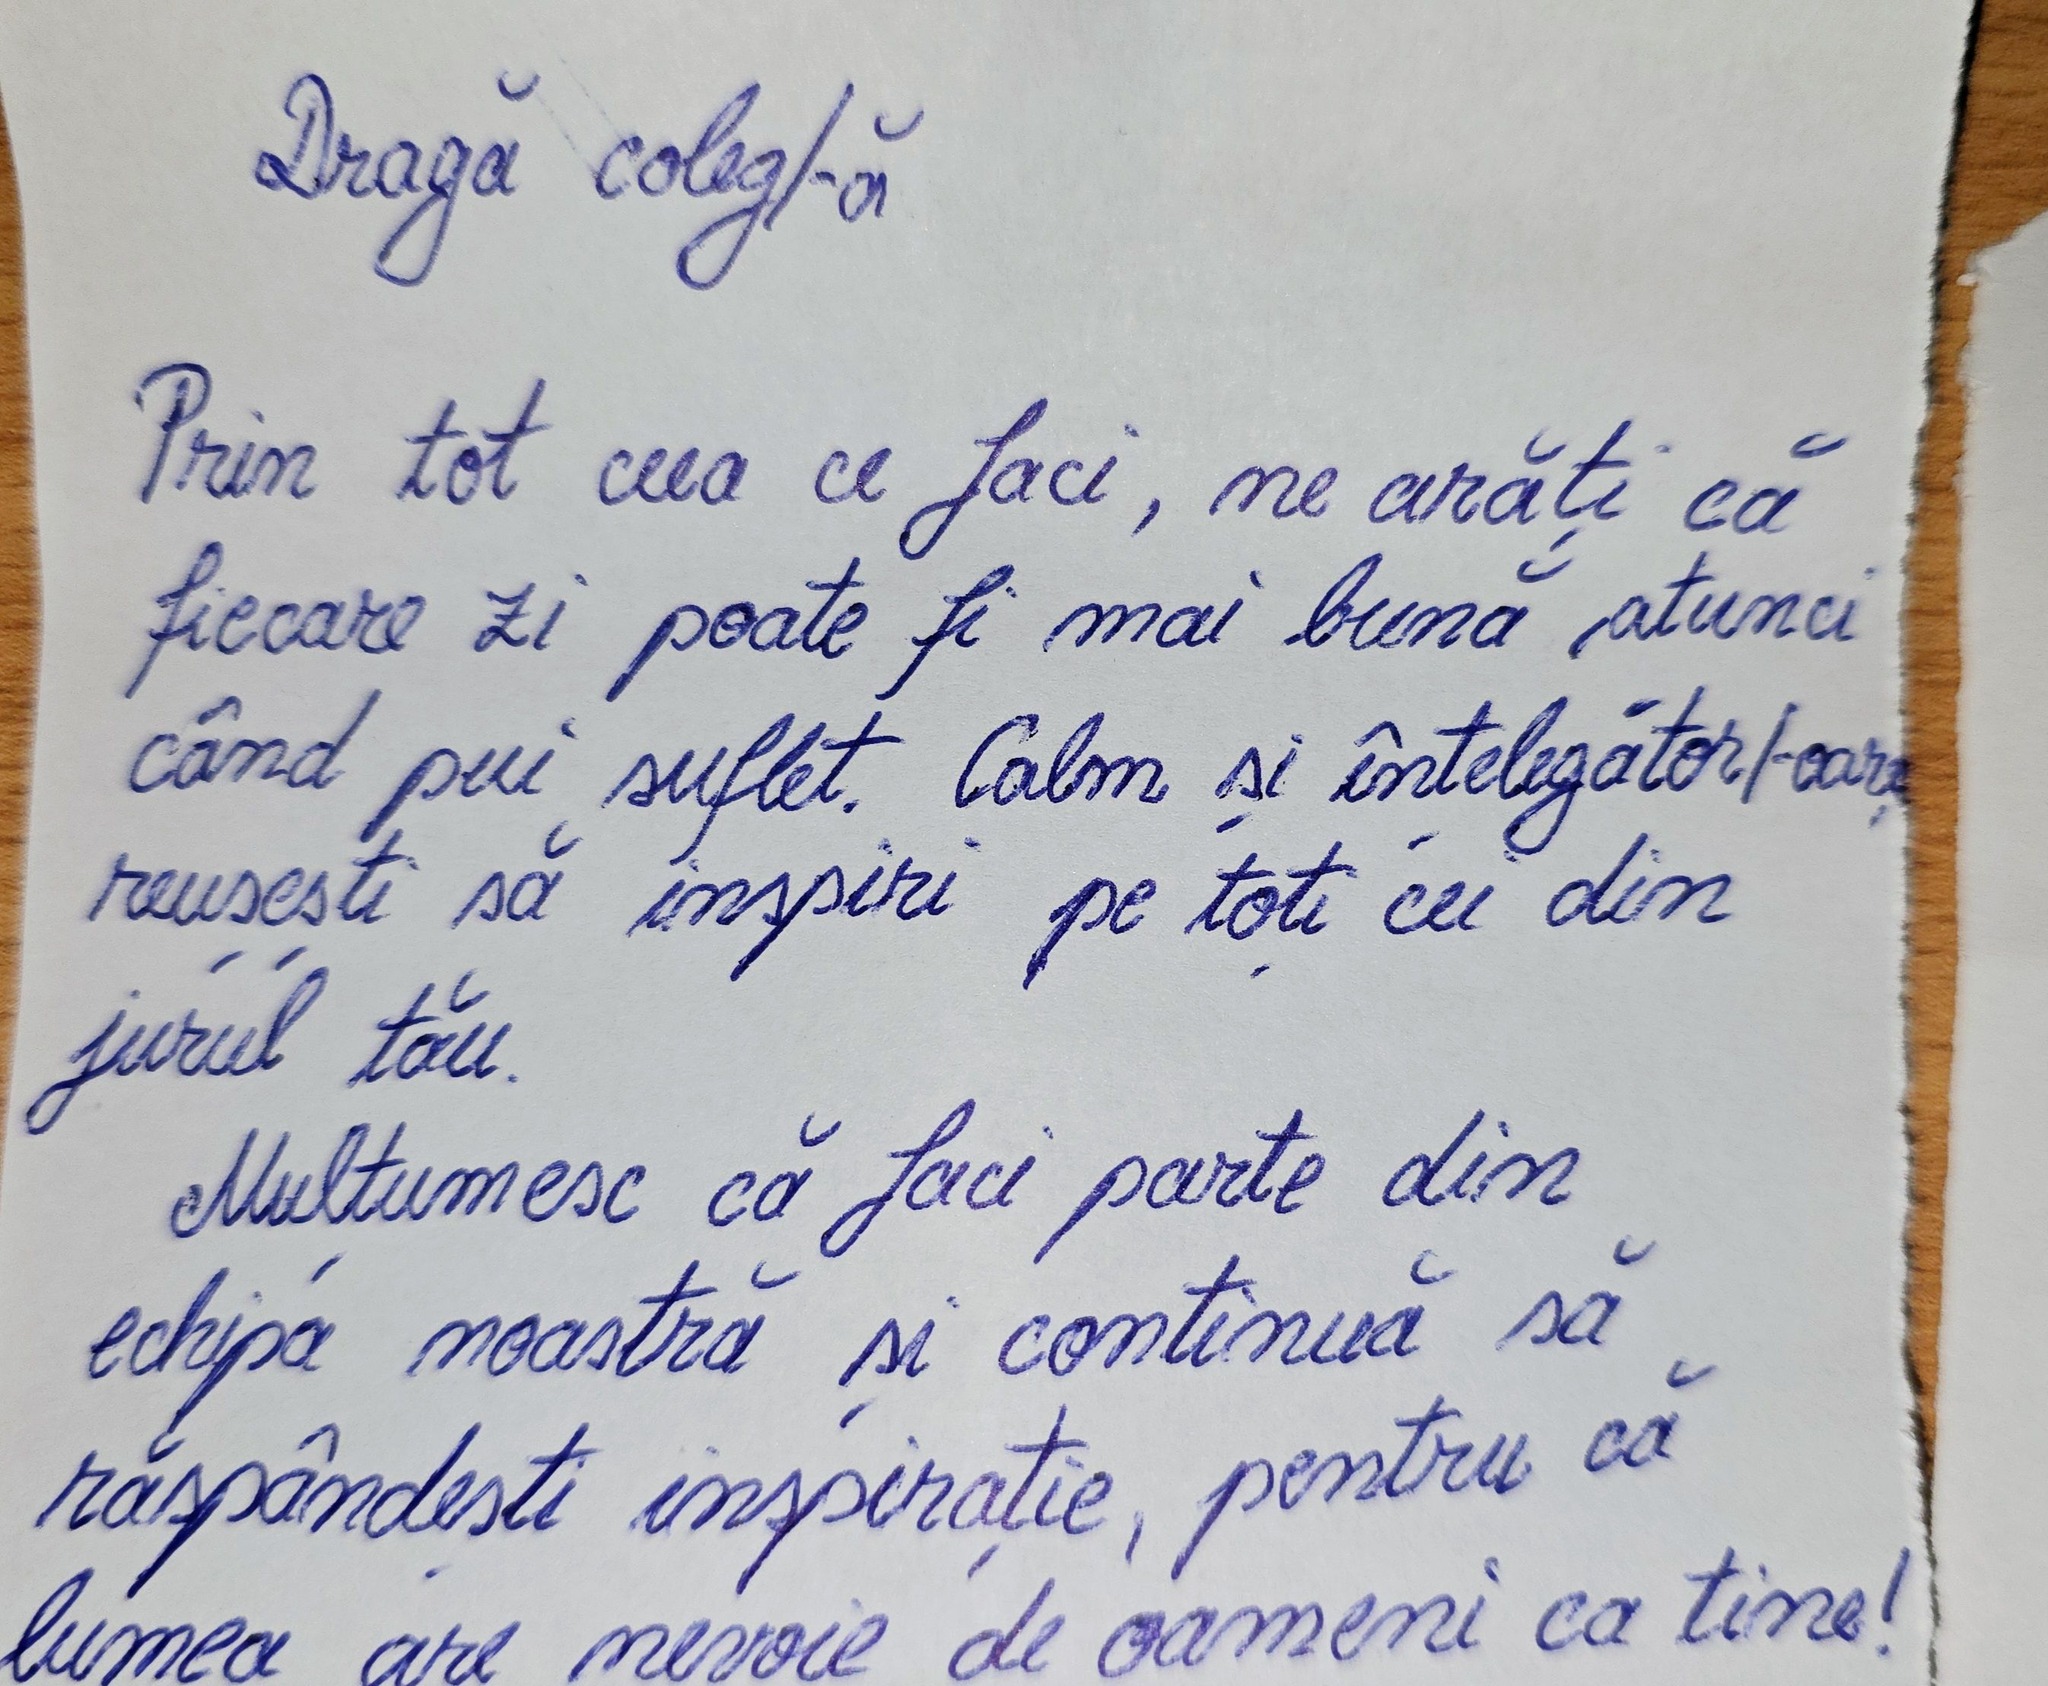 Dragă coleg/-ă
Prin tot ceea ce faci, ne arăți că
fiecare zi poate fi mai bună, atunci
când pui suflet. Calm și înțelegător/-oare,
reușești să inspiri pe toți cei din
jurul tău.
Mulțumesc că faci parte din
echipa noastră și continuă să
răspândești inspirație, pentru că
lumea are nevoie de oameni ca tine!